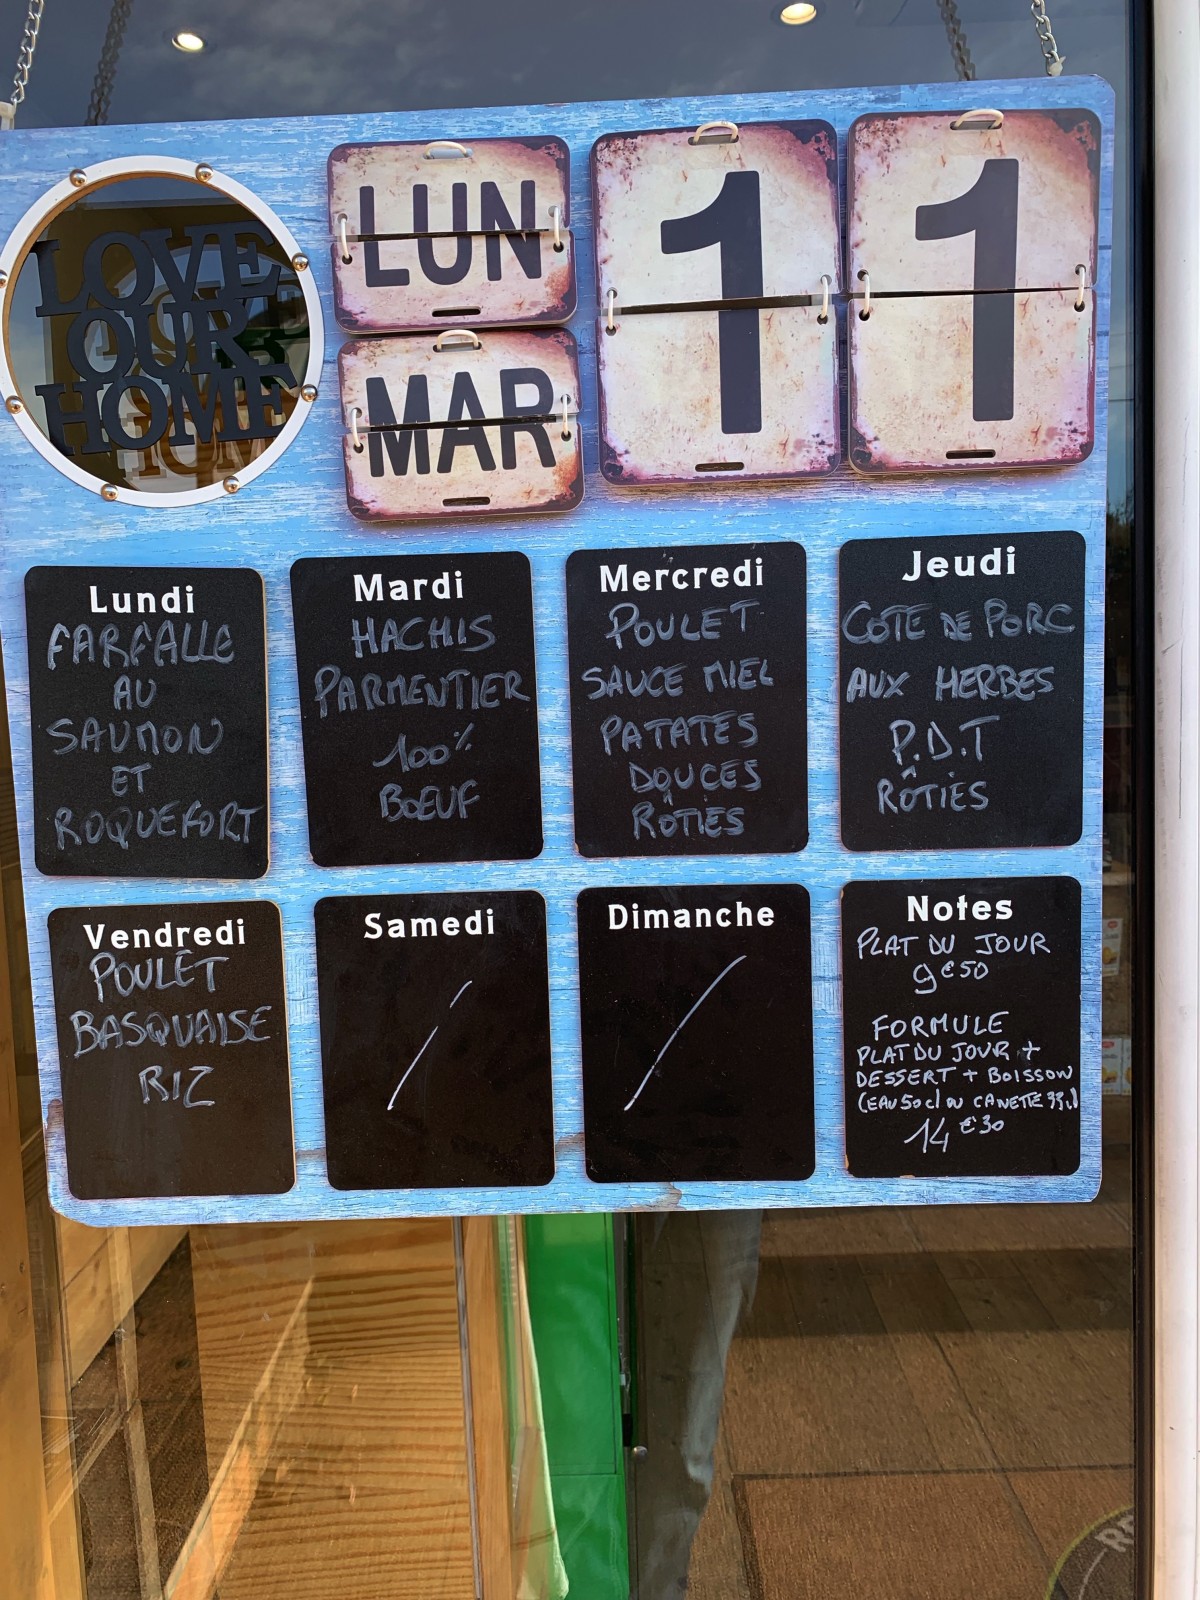 LOVE
OUR
HOME
LUN
MAR
11
Lundi
FARFALLE
AU
SAUMON
ET
ROQUEFORT
Mardi
HACHIS
PARMENTIER
100%
BŒUF
Mercredi
POULET
SAUCE MIEL
PATATES
DOUCES
RÔTIES
Jeudi
COTE DE PORC
AUX HERBES
P.D.T
RÔTIES
Vendredi
POULET
BASQUAISE
RIZ
Samedi
/
Dimanche
/
Notes
PLAT DU JOUR
9€50
FORMULE
PLAT DU JOUR +
DESSERT + BOISSON
(EAU 50cl OU CANETTE
14€30